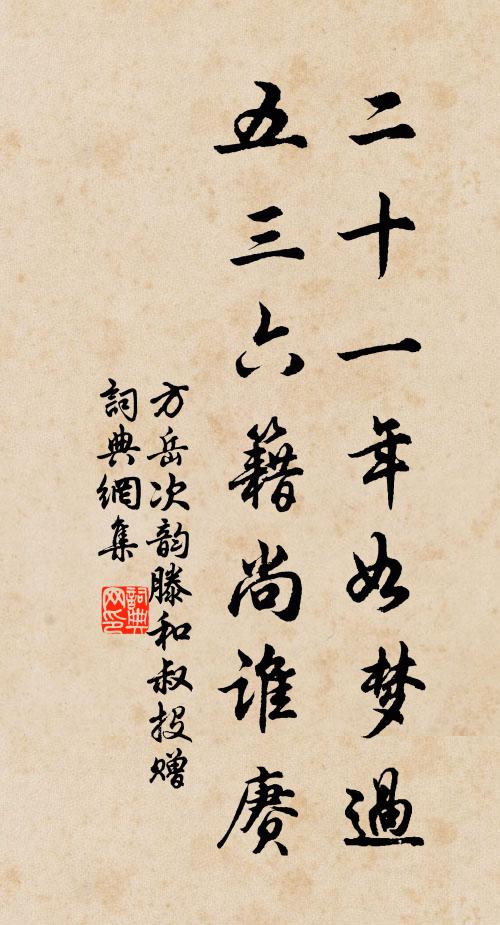 二十一年如梦過
五三六籍尚誰赓
方岳次韵滕和叔投赠
詞典網集
詞典
网印